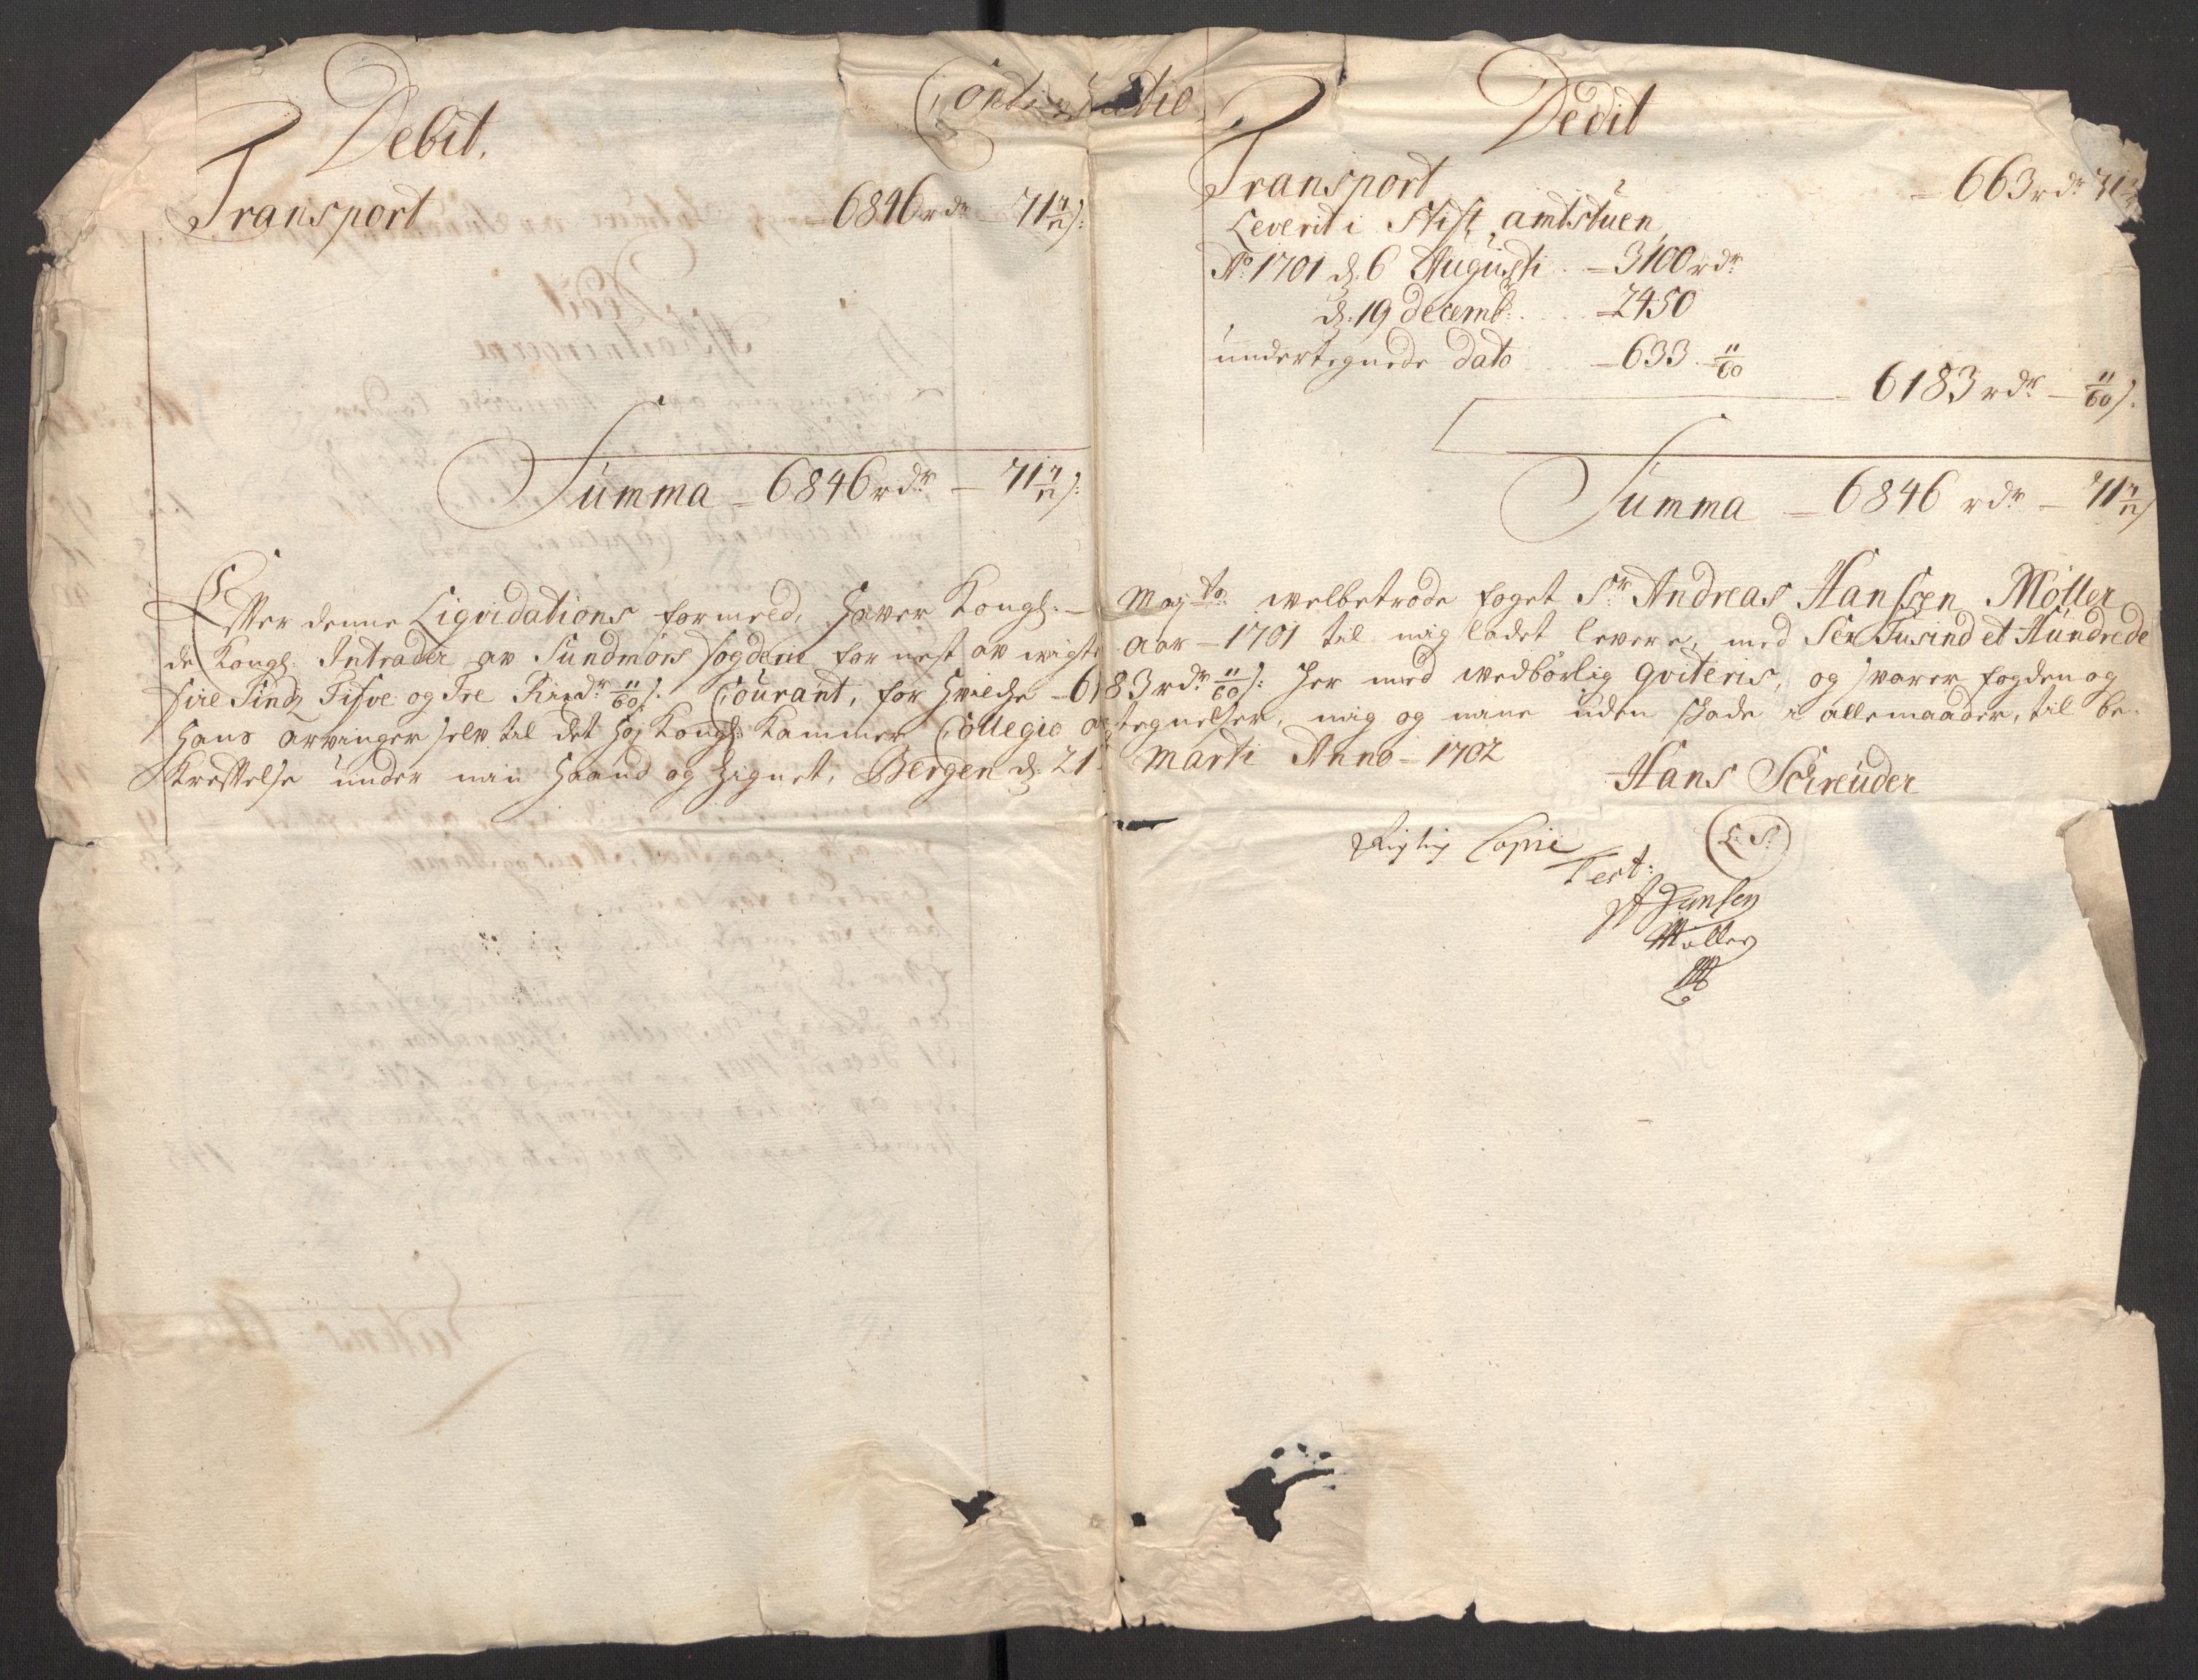 Continuatio
Debit.
Transport – 6846 rdr – 71 7/12 ß:
Summa – 6846 rdr – 71 7/12 ß:
Dedit
Transport – 663 rdr 71
Leverit i Stift amtstuen
Ao 1701 d. 6 Augusti – 3100 rdr
d. 19 decemb: – 2450
undertegnede dato – 633 – 11/60
6183 rdr – 11/60 ß.
Summa – 6846 rdr – 71 7/12 ß
Effter denne Liqvidations formeld, haver Kongl: – Mayts welbetrode foget Sr Andreas Hanssen Möller
de Kongl. Intrader av Sundmörs fogderie for nest av wigte Aar – 1701 til mig ladet levere, med Sex Tusind et Hundrede
fire Sindz Tifve og Tre Rixdr 11/60 ß. Courant, for hvilche – 6183 rdr 11/60 ß: her med wedbörlig qviteris, og svarer fogden og
hans arvinger selv til det høj Kongl: Kammer Collegio antegnelser, mig og mine uden skade i allemaader, til be-
kreftelse under min haand og Zignet, Bergen d: 21. Marti Anno – 1702
Hans Schreuder
(L: S:)
Rigtig Copie
Test:
A Hansen
Møller